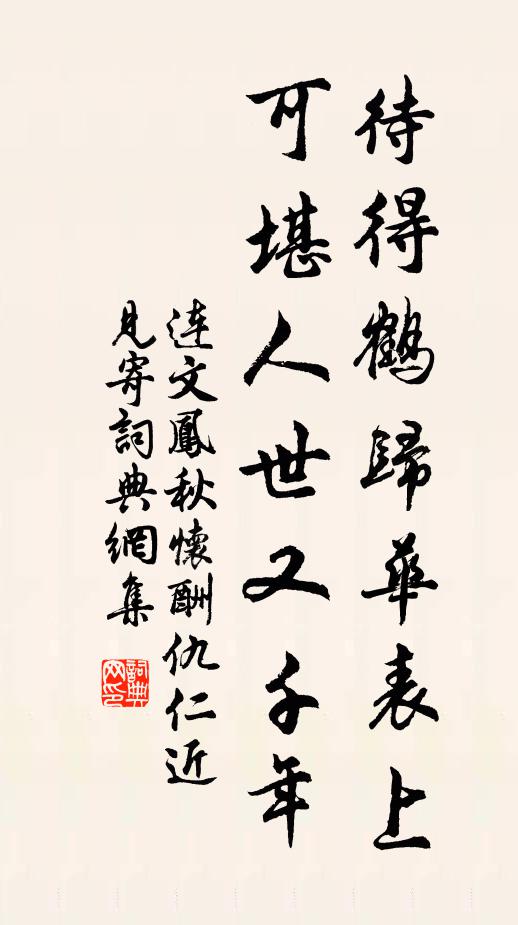 待得鶴歸華表上
可堪人世又千年
連文鳳秋懷酬仇仁近
見寄詞典網集
詞典网印